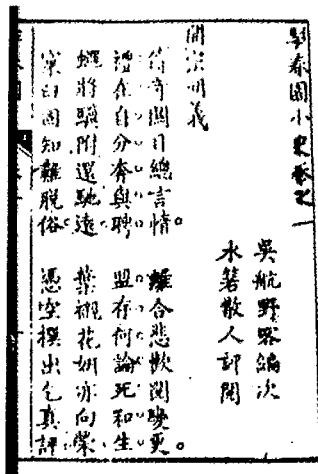 駐春園小史卷之一
吳航野客編次
水箬散人評閱
開宗明義
傳奇關目總言情。離合悲歡閱變更。
禮在自分奔與聘 盟存何論死和生
蠅將驥附還馳遠 葉襯花妍亦向榮
窠臼固知難脫俗 憑空撰出乞真評